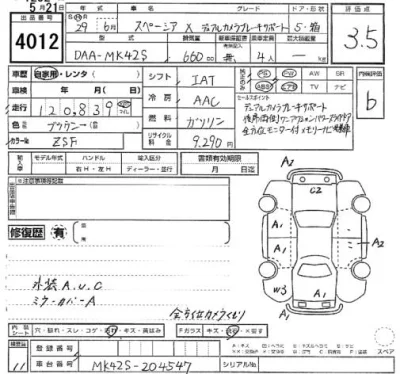 5月21日
出品番号 4012
初年度 29年6月
車名 スペーシア X
グレード デュアルカメラブレーキサポート
ドア・形状 5・箱
評価点 3.5
型式 DAA-MK42S
排気量 660cc
車歴歴 無
乗車定員 4人
最大積載量 — kg
車歴 自家用・レンタ( )
シフト IAT
PS PW AW SR
TV ナビ
内装評価 b
車検 年 月( )日
冷房 AAC
セールスポイント
走行 120,839 km マイル
デュアルカメラブレーキサポート
色 ブラウン
燃料 ガソリン
全方位モニター付メモリーナビ
カラーNo. ZSF
リサイクル料金 9,290円
輸入車 モデル年式 ハンドル 輸入区分
年 右H・左H ディーラー・並行
書類有効期限
月 日迄
注意事項等記載
修復歴 有
外装A.U.C
ミラーカバーA
全方位カメラくもり
A2
C2
A1
A1
A1
A2
W3
A1
A1
内装シート 穴・破れ・スレ・コゲ・汚れ・キズ・黄ばみ
Fガラス キズ・X要す
スペア
検査員
登録番号
車台番号 MK42S-204547
シリアルNo.